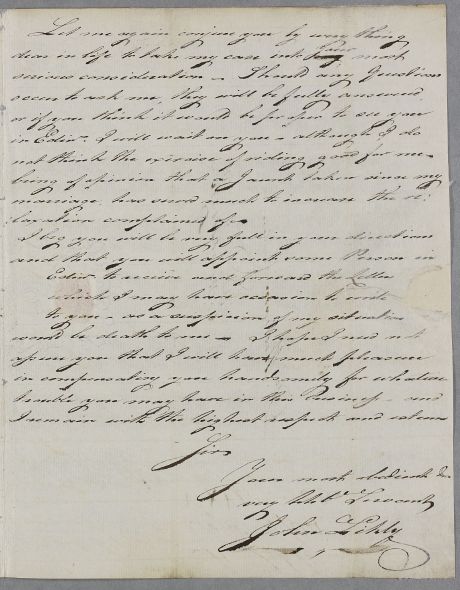 Let me again conjure you by every thing
dear in life to take my case into your most
serious consideration - Should any Questions
occur to ask me, they will be fully answered,
or if you think it would be proper to see you
in Edinr. I will wait on you - although I do
not think the exercise of riding good for me -
being of opinion that a Jaunt taken since my
marriage, has served much to increase the re:
laxation complained of -
I beg you will be very full in your directions
and that you will appoint some Person in
Edinr. to receive and forward the letters
which I may have occasion to write
to you - as a suspicion of my situation
would be death to me - I hope I need not
assure you that I will have much pleasure
in compensating you handsomely for whatever
trouble you may have in this Business - and
I remain with the highest respect and esteem
Sir
Your most obedient &
very hble. Servant
John Likly